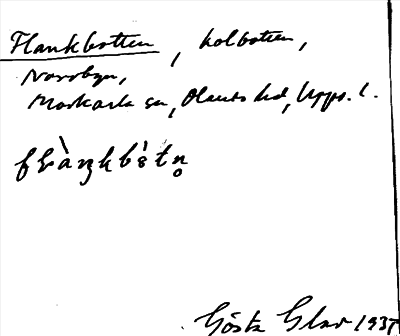 Flankbotten, kolbotten,
Norrbyn,
Morkarla sn, Olands hd, Upps. l.
Gösta 1937